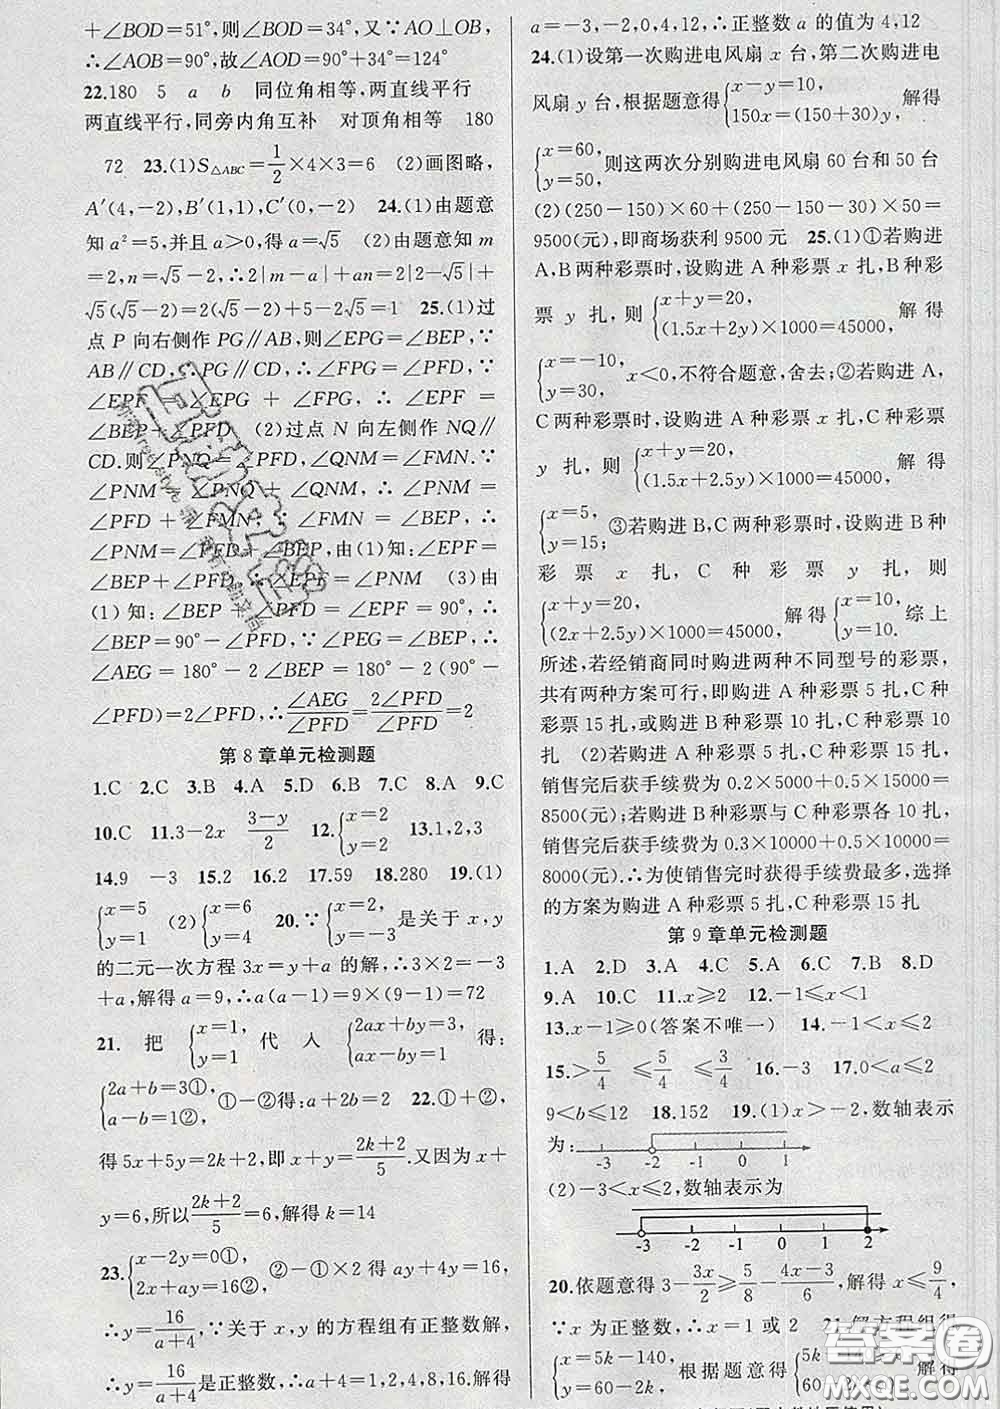 +∠BOD=51°,则∠BOD=34°,又∵AO⊥OB,
∴∠AOB=90°,故∠AOD=90°+34°=124°
22.180 5 a b 同位角相等,两直线平行
两直线平行,同旁内角互补 对顶角相等 180
72 23.(1)S△ABC=1/2×4×3=6 (2)画图略,
A′(4,-2),B′(1,1),C′(0,-2) 24.(1)由题意
知a²=5,并且a>0,得a=√5 (2)由题意知m
=2,n=√5-2,∴2|m-a|+an=2|2-√5|+
√5(√5-2)=2(√5-2)+5-2√5=1 25.(1)过
点P向右侧作PG∥AB,则∠EPG=∠BEP,∵
AB∥CD,∴PG∥CD,∴∠FPG=∠PFD,∵
∠EPF=∠EPG+∠FPG,∴∠EPF=
∠BEP+∠PFD (2)过点N向左侧作NQ∥
CD.则∠PNQ=∠PFD,∠QNM=∠FMN.∵
∠PNM=∠PNQ+∠QNM,∴∠PNM=
∠PFD+∠FMN.∵∠FMN=∠BEP,∴
∠PNM=∠PFD+∠BEP,由(1)知:∠EPF=
∠BEP+∠PFD,∴∠EPF=∠PNM (3)由
(1)知:∠BEP+∠PFD=∠EPF=90°,∴
∠BEP=90°-∠PFD,∵∠PEG=∠BEP,∴
∠AEG=180°-2∠BEP=180°-2(90°-
∠PFD)=2∠PFD,∴∠AEG/∠PFD=2∠PFD/∠PFD=2
第8章单元检测题
1.C 2.C 3.B 4.A 5.D 6.B 7.C 8.A 9.C
10.C 11.3-2x (3-y)/2 12.{x=2 y=2 13.1,2,3
14.9 -3 15.2 16.2 17.59 18.280 19.(1)
{x=5 y=1 (2){x=6 y=4 20.∵{x=2, y=-3是关于x,y
的二元一次方程3x=y+a的解,∴3×2=-3
+a,解得a=9,∴a(a-1)=9×(9-1)=72
21.把{x=1, y=1代人{2ax+by=3, ax-by=1得:
{2a+b=3①, a-b=1②,①-②得:a+2b=2 22.①+②,
得5x+5y=2k+2,即x+y=(2k+2)/5.又因为x+
y=6,所以(2k+2)/5=6,解得k=14
23.{x-2y=0①, 2x+ay=16②,②-①×2得ay+4y=16,
∴y=16/(a+4),∵关于x,y的方程组有正整数解,
∴y=16/(a+4)是正整数,∴a+4=1,2,4,8,16.解得
a=-3,-2,0,4,12,∴正整数a的值为4,12
24.(1)设第一次购进电风扇x台,第二次购进电
风扇y台,根据题意得{x-y=10, 150x=(150+30)y,解得
{x=60, y=50,则这两次分别购进电风扇60台和50台
(2)(250-150)×60+(250-150-30)×50=
9500(元),即商场获利9500元 25.(1)①若购进
A,B两种彩票时,设购进A种彩票x扎,B种彩
票y扎,则{x+y=20, (1.5x+2y)×1000=45000,解得
{x=-10, y=30,x<0,不符合题意,舍去;②若购进A,
C两种彩票时,设购进A种彩票x扎,C种彩票
y扎,则{x+y=20, (1.5x+2.5y)×1000=45000,解得
{x=5, y=15;③若购进B,C两种彩票时,设购进B种
彩票x扎,C种彩票y扎,则
{x+y=20, (2x+2.5y)×1000=45000,解得{x=10, y=10.综上
所述,若经销商同时购进两种不同型号的彩票,
共有两种方案可行,即购进A种彩票5扎,C种
彩票15扎,或购进B种彩票10扎,C种彩票10
扎 (2)若购进A种彩票5扎,C种彩票15扎,
销售完后获手续费为0.2×5000+0.5×15000=
8500(元);若购进B种彩票与C种彩票各10扎,
销售完后获手续费为0.3×10000+0.5×10000=
8000(元).∴为使销售完时获得手续费最多,选择
的方案为购进A种彩票5扎,C种彩票15扎
第9章单元检测题
1.A 2.D 3.A 4.C 5.A 6.C 7.B 8.D
9.A 10.C 11.x≥2 12.-1≤x<1
13.x-1≥0(答案不唯一) 14.-1<x≤2
15.>5/4 ≤5/4 ≤3/4 16.-3 17.0<a≤2
9<b≤12 18.152 19.(1)x>-2,数轴表示
为: -3 -2 -1 0 1
(2)-3<x≤2,数轴表示为
-3 -2 -1 0 1 2
20.依题意得3-3x/2≥5/8-(4x-3)/6,解得x≤9/4,
∵x为正整数,∴x=1或2 21.解方程组得
{x=5k-140, y=60-2k,根据题意得
答案圈
MXQE.COM